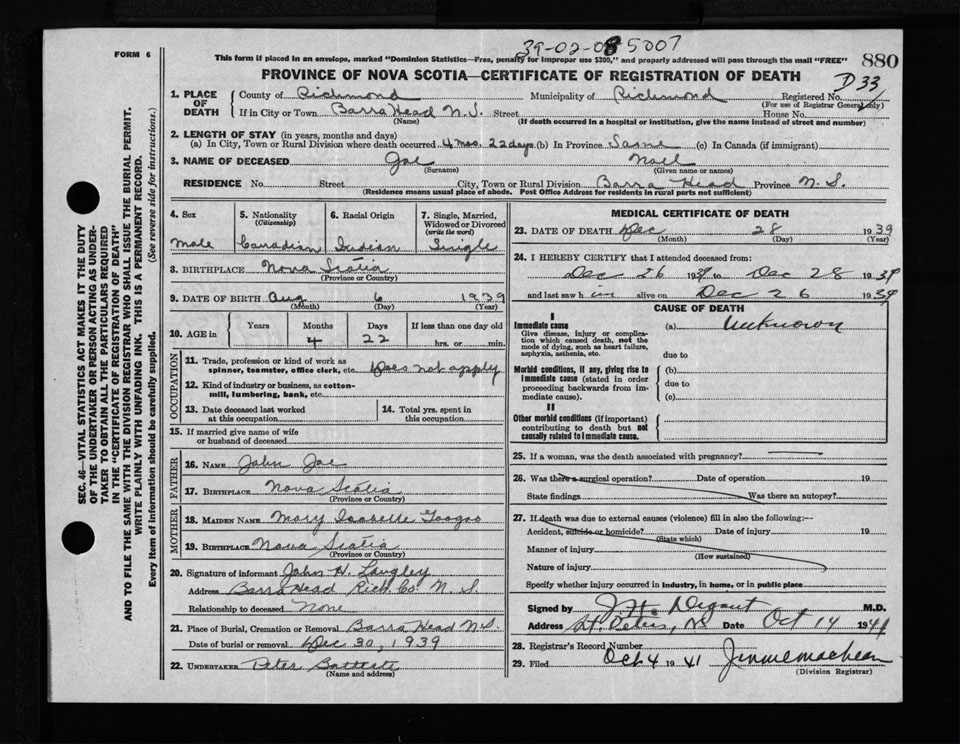 39-02-085007
FORM 6
This form if placed in an envelope, marked "Dominion Statistics—Free, penalty for improper use $300," and properly addressed will pass through the mail "FREE"
880
PROVINCE OF NOVA SCOTIA—CERTIFICATE OF REGISTRATION OF DEATH
D 33
1. PLACE OF DEATH County of Richmond Municipality of Richmond Registered No.
(For use of Registrar General only)
If in City or Town Barra Head N.S. Street House No.
(Name) (If death occurred in a hospital or institution, give the name instead of street and number)
2. LENGTH OF STAY (in years, months and days)
(a) In City, Town or Rural Division where death occurred 4 mos. 22 days (b) In Province Same (c) In Canada (if immigrant)
3. NAME OF DECEASED Joe Noel
(Surname) (Given name or names)
RESIDENCE No. Street City, Town or Rural Division Barra Head Province N. S.
(Residence means usual place of abode. Post Office Address for residents in rural parts not sufficient)
SEC. 46—VITAL STATISTICS ACT MAKES IT THE DUTY
OF THE UNDERTAKER OR PERSON ACTING AS UNDER-
TAKER TO OBTAIN ALL THE PARTICULARS REQUIRED
IN THE "CERTIFICATE OF REGISTRATION OF DEATH"
AND TO FILE THE SAME WITH THE DIVISION REGISTRAR WHO SHALL ISSUE THE BURIAL PERMIT.
WRITE PLAINLY WITH UNFADING INK. THIS IS A PERMANENT RECORD.
Every item of information should be carefully supplied. (See reverse side for instructions.)
4. Sex 5. Nationality (Citizenship) 6. Racial Origin 7. Single, Married, Widowed or Divorced (write the word)
Male Canadian Indian Single
8. BIRTHPLACE Nova Scotia
(Province or Country)
9. DATE OF BIRTH Aug 6 1939
(Month) (Day) (Year)
10. AGE in Years Months Days If less than one day old
4 22 hrs. or min.
OCCUPATION
11. Trade, profession or kind of work as
spinner, teamster, office clerk, etc. Does not apply
12. Kind of industry or business, as cotton-
mill, lumbering, bank, etc.
13. Date deceased last worked at this occupation
14. Total yrs. spent in this occupation
15. If married give name of wife
or husband of deceased
FATHER
16. NAME John Joe
17. BIRTHPLACE Nova Scotia
(Province or Country)
MOTHER
18. MAIDEN NAME Mary Isabelle Googoo
19. BIRTHPLACE Nova Scotia
(Province or Country)
20. Signature of informant John H. Langley
Address Barra Head Rich. Co. N. S.
Relationship to deceased None
21. Place of Burial, Cremation or Removal Barra Head N.S.
Date of burial or removal Dec 30, 1939
22. UNDERTAKER Peter
(Name and address)
MEDICAL CERTIFICATE OF DEATH
23. DATE OF DEATH Dec 28 1939
(Month) (Day) (Year)
24. I HEREBY CERTIFY that I attended deceased from:
Dec 26 1939 to Dec 28 1939
and last saw him alive on Dec 26 1939
CAUSE OF DEATH
I
Immediate cause (a) Unknown
Give disease, injury or complica-
tion which caused death, not the
mode of dying, such as heart failure,
asphyxia, asthenia, etc. due to
Morbid conditions, if any, giving rise to (b)
immediate cause (stated in order due to
proceeding backwards from im-
mediate cause). (c)
II
Other morbid conditions (if important)
contributing to death but not
causally related to immediate cause.
25. If a woman, was the death associated with pregnancy?
26. Was there a surgical operation? Date of operation 19
State findings Was there an autopsy?
27. If death was due to external causes (violence) fill in also the following:—
Accident, suicide or homicide? Date of injury 19
(State which)
Manner of injury
(How sustained)
Nature of injury
Specify whether injury occurred in industry, in home, or in public place
Signed by M.D.
Address St. Peters, NS Date Oct 14 1941
28. Registrar's Record Number
29. Filed Oct 4 1941
(Division Registrar)